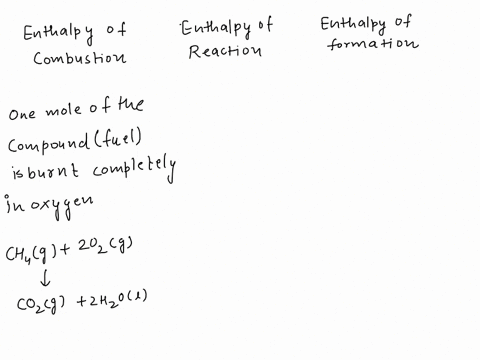 Enthalpy of
Combustion
Enthalpy of
Reaction
Enthalpy of
formation
One mole of the
Compound (fuel)
is burnt completely
in oxygen
CH₄(g) + 2O₂(g)
↓
CO₂(g) + 2H₂O(l)